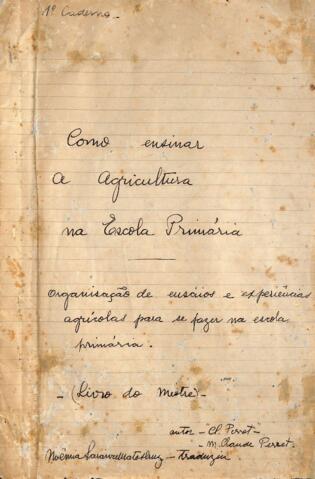 1º Caderno -
Como ensinar
a Agricultura
na Escola Primária
Organisação de ensáios e experiências
agrícolas para se fazer na escola
primária.
- (Livro do Mestre) -
autor - Ch. Perret -
- M. Claude Perret -
Noêmia - traduziu